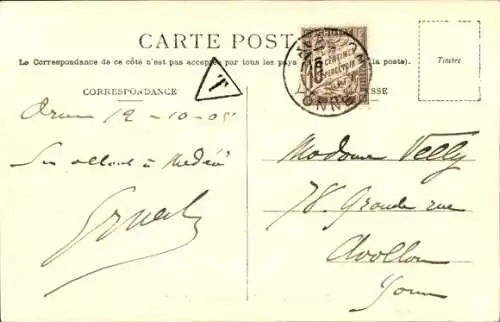 CARTE POST
Le Correspondance de ce côté n'est pas acceptée par tous les pays la poste).
CORRESPONDANCE
ESSE
Timbre
T
10 CENTIMES
À PERCEVOIR
12-10-05
En allant à Médéa
Madame Velly
78. Grande rue
Avallon
Yonne